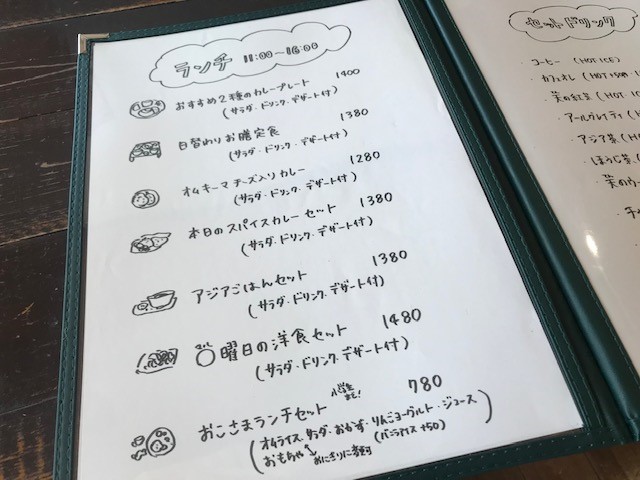 ランチ 11:00〜16:00
おすすめ2種のカレープレート 1400
(サラダ・ドリンク・デザート付)
日替わりお膳定食 1380
(サラダ・ドリンク・デザート付)
オムキーマチーズ入りカレー 1280
(サラダ・ドリンク・デザート付)
本日のスパイスカレーセット 1380
(サラダ・ドリンク・デザート付)
アジアごはんセット 1380
(サラダ・ドリンク・デザート付)
〇曜日の洋食セット 1480
(サラダ・ドリンク・デザート付)
おこさまランチセット 小学生まで! 780
(オムライス・サラダ・おかず・りんごヨーグルト・ジュース)
おもちゃ おにぎりに変更可 (バニラアイス+50)
セットドリンク
・コーヒー (HOT・ICE)
・カフェオレ (HOT・
・茶の紅茶 (HOT・IC
・アールグレイティ (H
・アジア茶 (H
・ほうじ茶 (